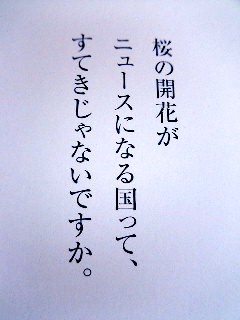 桜の開花が
ニュースになる国って、
すてきじゃないですか。